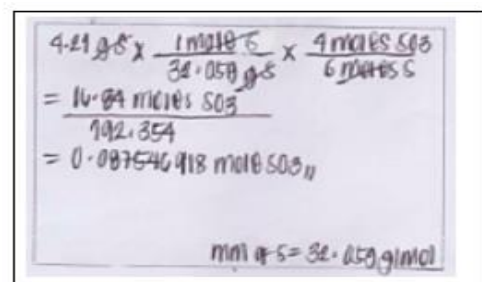 4.21 g S x 1 mole S / 32.059 g S x 4 moles SO3 / 6 moles S
= 16.84 moles SO3 / 192.354
= 0.087546918 mole SO3 //
mm of S = 32.059 g/mol